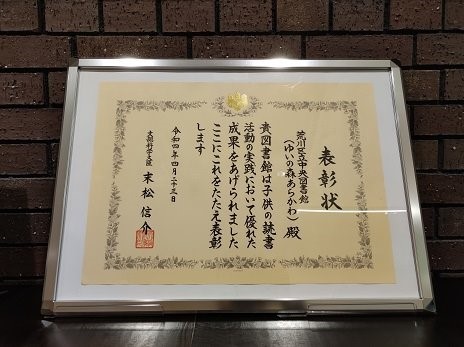 表彰状
荒川区立中央図書館
(ゆいの森あらかわ)殿
貴図書館は子供の読書
活動の実践において優れた
成果をあげられました
ここにこれをたたえ表彰
します
令和四年四月二十三日
文部科学大臣 末松信介